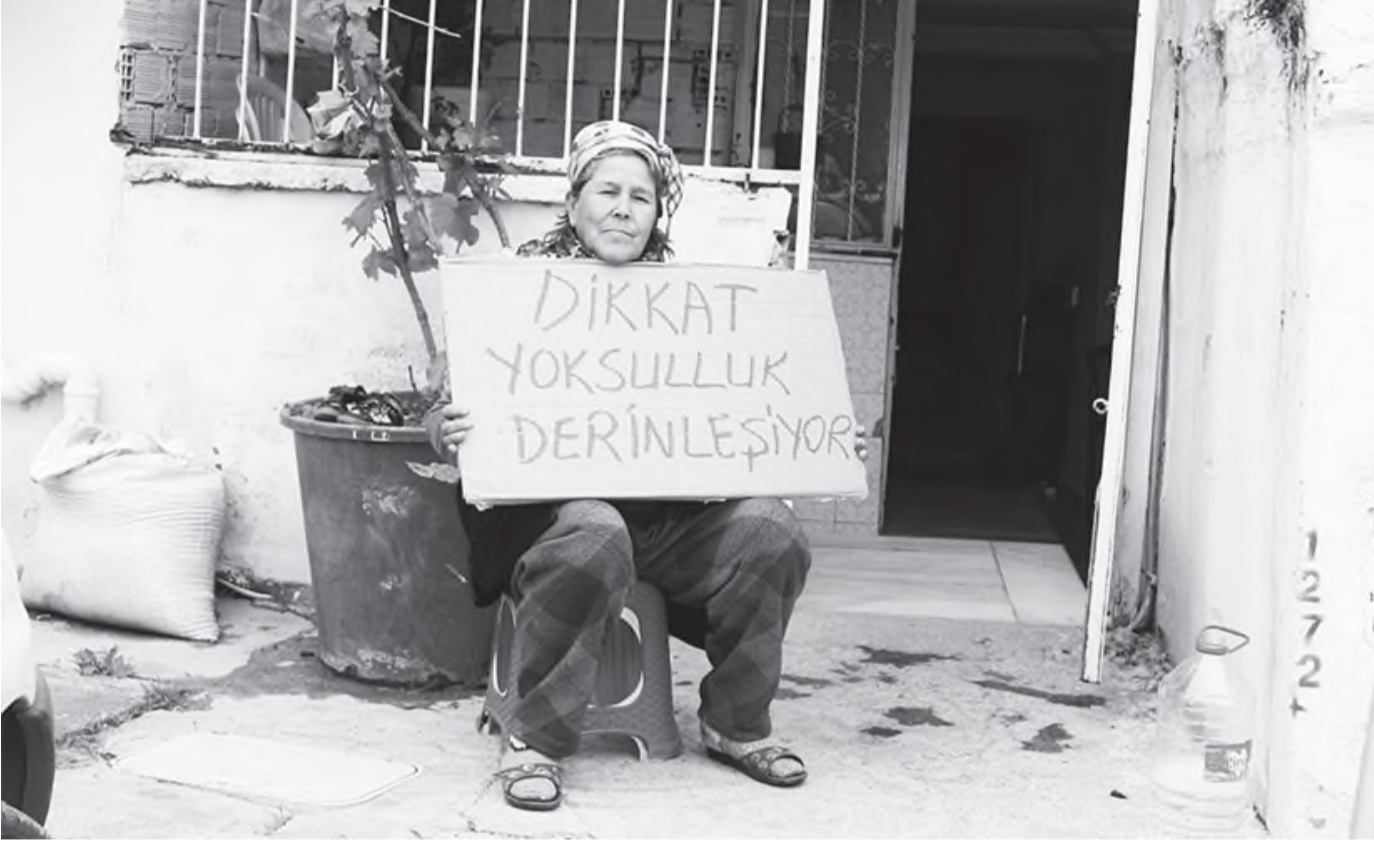 DİKKAT
YOKSULLUK
DERİNLEŞİYOR
1272+